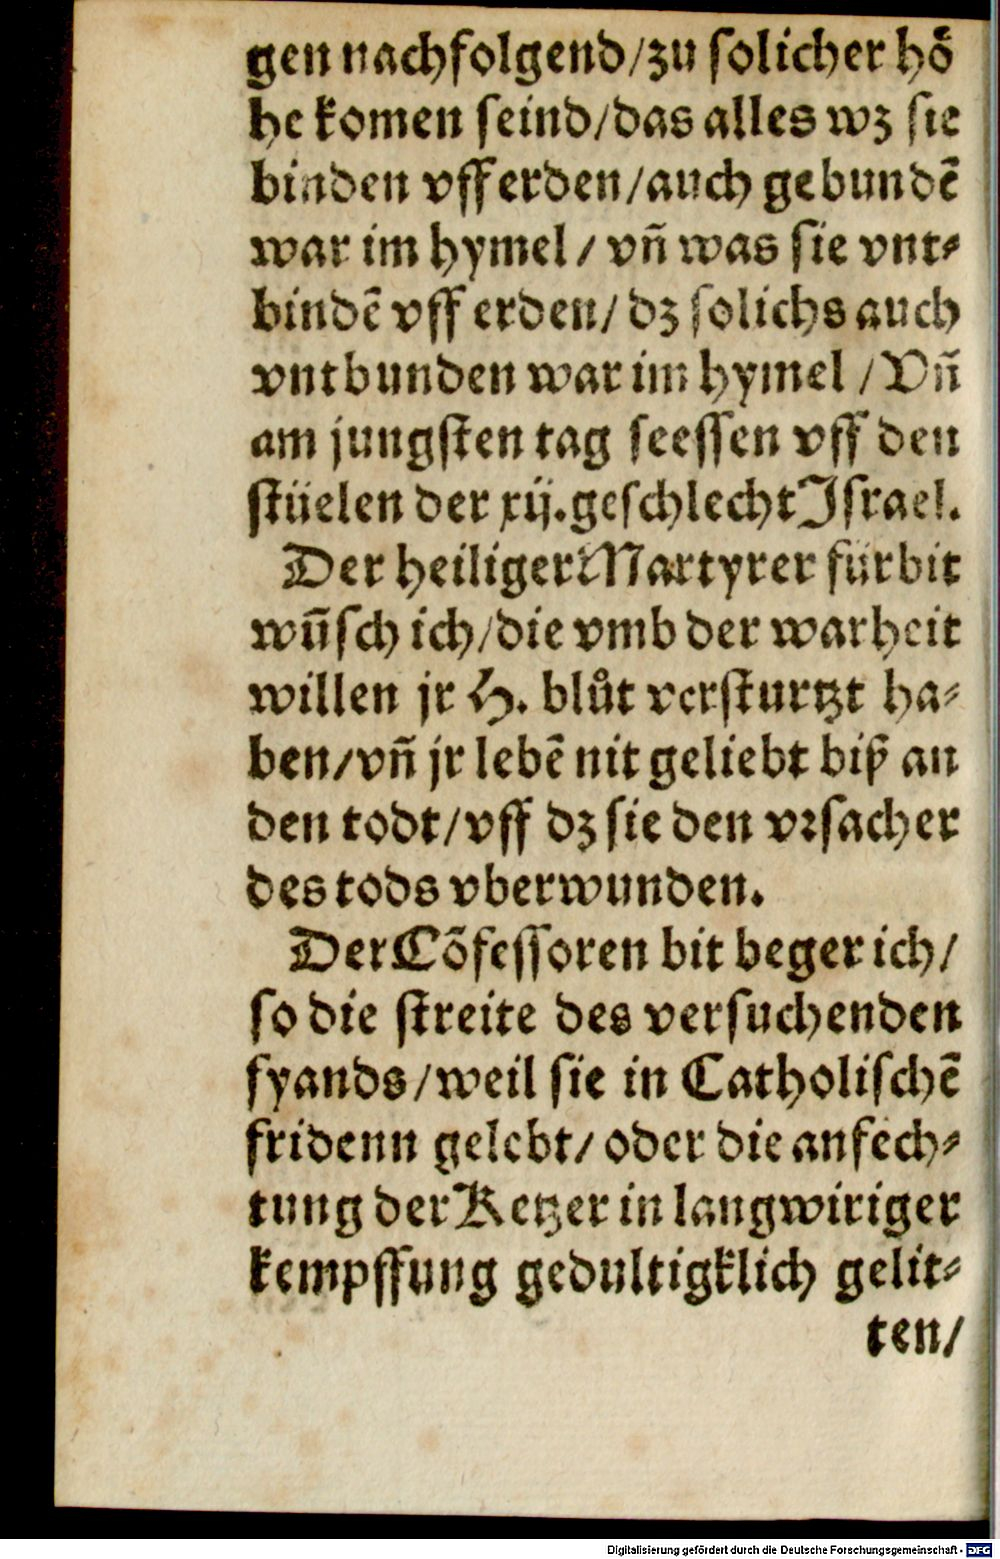 gen nachfolgend/zu solicher hoͤ
he komen seind/das alles wz sie
binden vff erden/auch gebundē
war im hymel/ vñ was sie vnt⸗
bindē vff erden/ dz solichs auch
vntbunden war im hymel /Vñ
am jungsten tag seessen vff den
stüelen der xij.geschlecht Israel.
Der heiliger Martyrer fürbit
wüsch ich/die vmb der warheit
willen jr H. blůt versturtzt ha⸗
ben/vñ jr lebē nit geliebt biß an
den todt/vff dz sie den vrsacher
des tods vberwunden.
Der Cõfessoren bit beger ich/
so die streite des versuchenden
fyands/weil sie in Catholischē
fridenn gelebt/ oder die anfech⸗
tung der Ketzer in langwiriger
kempffung gedultigklich gelit⸗
ten/
Digitalisierung gefördert durch die Deutsche Forschungsgemeinschaft - DFG